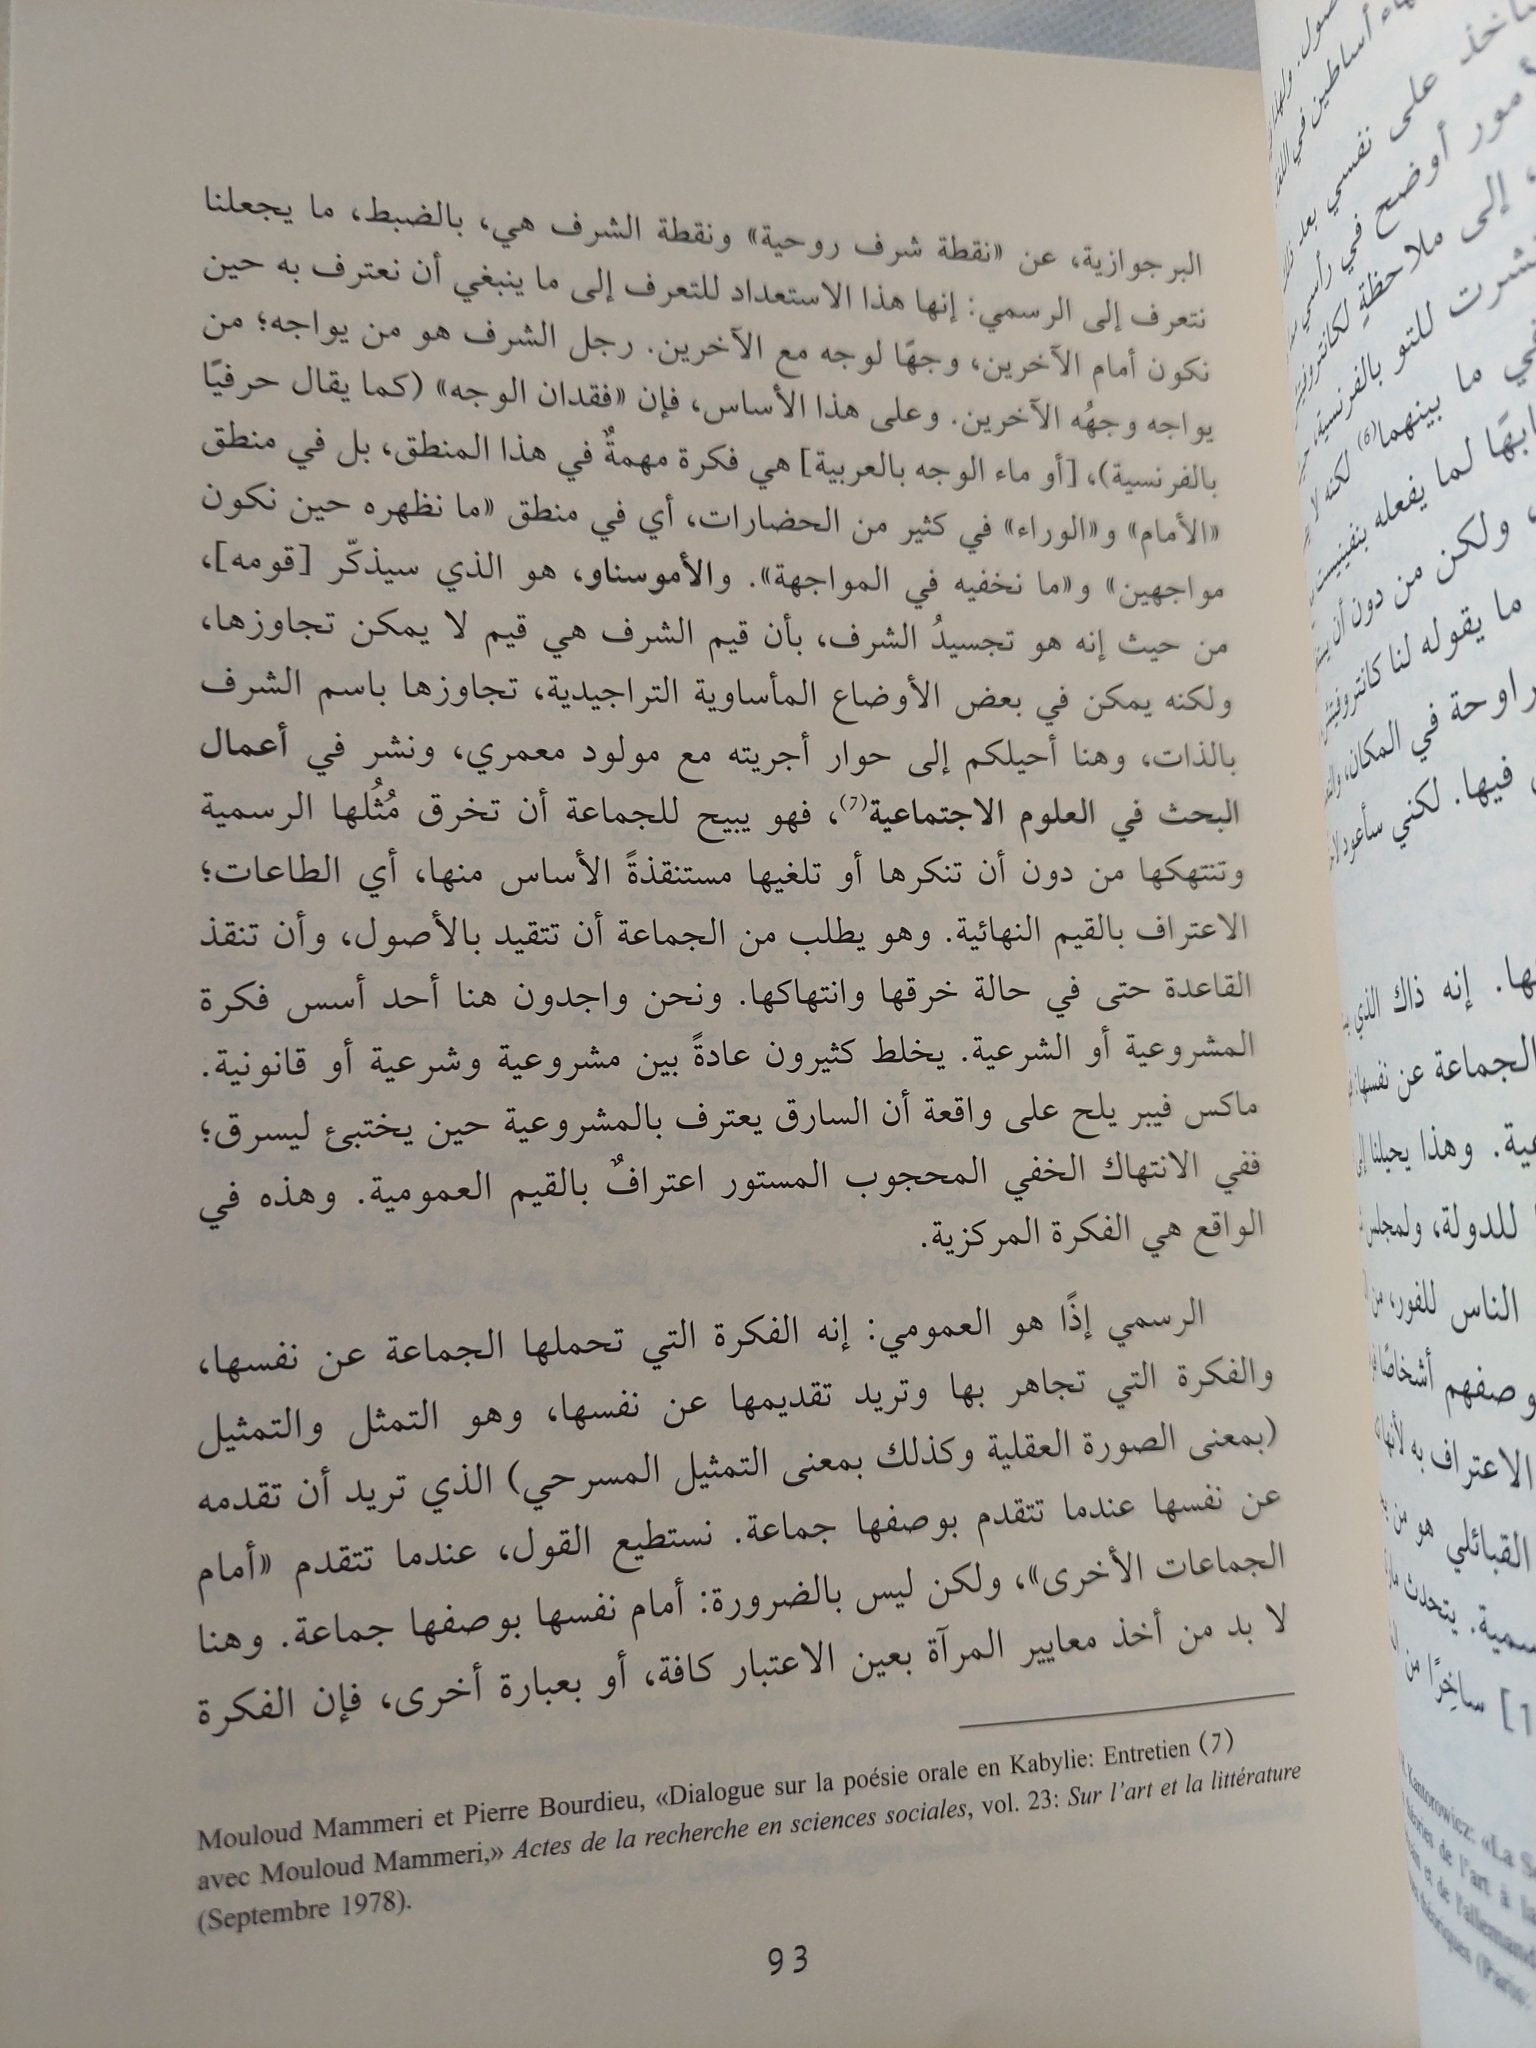 البرجوازية، عن «نقطة شرف روحية» ونقطة الشرف هي، بالضبط، ما يجعلنا
نتعرف إلى الرسمي: إنها هذا الاستعداد للتعرف إلى ما ينبغي أن نعترف به حين
نكون أمام الآخرين، وجهًا لوجه مع الآخرين. رجل الشرف هو من يواجه؛ من
يواجه وجهُه الآخرين. وعلى هذا الأساس، فإن «فقدان الوجه» (كما يقال حرفيًا
بالفرنسية)، [أو ماء الوجه بالعربية] هي فكرة مهمةٌ في هذا المنطق، بل في منطق
«الأمام» و«الوراء» في كثير من الحضارات، أي في منطق «ما نظهره حين نكون
مواجهين» و«ما نخفيه في المواجهة». والأموسناو، هو الذي سيذكّر [قومه]،
من حيث إنه هو تجسيدُ الشرف، بأن قيم الشرف هي قيم لا يمكن تجاوزها،
ولكنه يمكن في بعض الأوضاع المأساوية التراجيدية، تجاوزها باسم الشرف
بالذات، وهنا أحيلكم إلى حوار أجريته مع مولود معمري، ونشر في أعمال
البحث في العلوم الاجتماعية(7)، فهو يبيح للجماعة أن تخرق مُثُلها الرسمية
وتنتهكها من دون أن تنكرها أو تلغيها مستنقذةً الأساس منها، أي الطاعات؛
الاعتراف بالقيم النهائية. وهو يطلب من الجماعة أن تتقيد بالأصول، وأن تنقذ
القاعدة حتى في حالة خرقها وانتهاكها. ونحن واجدون هنا أحد أسس فكرة
المشروعية أو الشرعية. يخلط كثيرون عادةً بين مشروعية وشرعية أو قانونية.
ماكس فيبر يلح على واقعة أن السارق يعترف بالمشروعية حين يختبئ ليسرق؛
ففي الانتهاك الخفي المحجوب المستور اعترافٌ بالقيم العمومية. وهذه في
الواقع هي الفكرة المركزية.
الرسمي إذًا هو العمومي: إنه الفكرة التي تحملها الجماعة عن نفسها،
والفكرة التي تجاهر بها وتريد تقديمها عن نفسها، وهو التمثل والتمثيل
(بمعنى الصورة العقلية وكذلك بمعنى التمثيل المسرحي) الذي تريد أن تقدمه
عن نفسها عندما تتقدم بوصفها جماعة. نستطيع القول، عندما تتقدم «أمام
الجماعات الأخرى»، ولكن ليس بالضرورة: أمام نفسها بوصفها جماعة. وهنا
لا بد من أخذ معايير المرآة بعين الاعتبار كافة، أو بعبارة أخرى، فإن الفكرة
Mouloud Mammeri et Pierre Bourdieu, «Dialogue sur la poésie orale en Kabylie: Entretien (7)
avec Mouloud Mammeri,» Actes de la recherche en sciences sociales, vol. 23: Sur l'art et la littérature
(Septembre 1978).
93
أساطين في اللغة
ساخذ على نفسي بعد
أمور أوضح في رأسي
إلى ملاحظةٍ
نشرت للتو بالفرنسية،
في ما بينهما(6) لكنه لا
لما يفعله بنفينيست
ولكن من دون أن
ما يقوله لنا
في المكان،
فيها. لكني سأعود
إنه ذاك الذي
الجماعة عن نفسها
وهذا يحيلنا إلى
للدولة، ولمجلس
الناس للفور، من
أشخاصًا
الاعتراف به لأنها
القبائلي هو من
يتحدث
ساخرًا من
Kantorowicz: «La
de l'art à
et de l'allemand
(Paris: